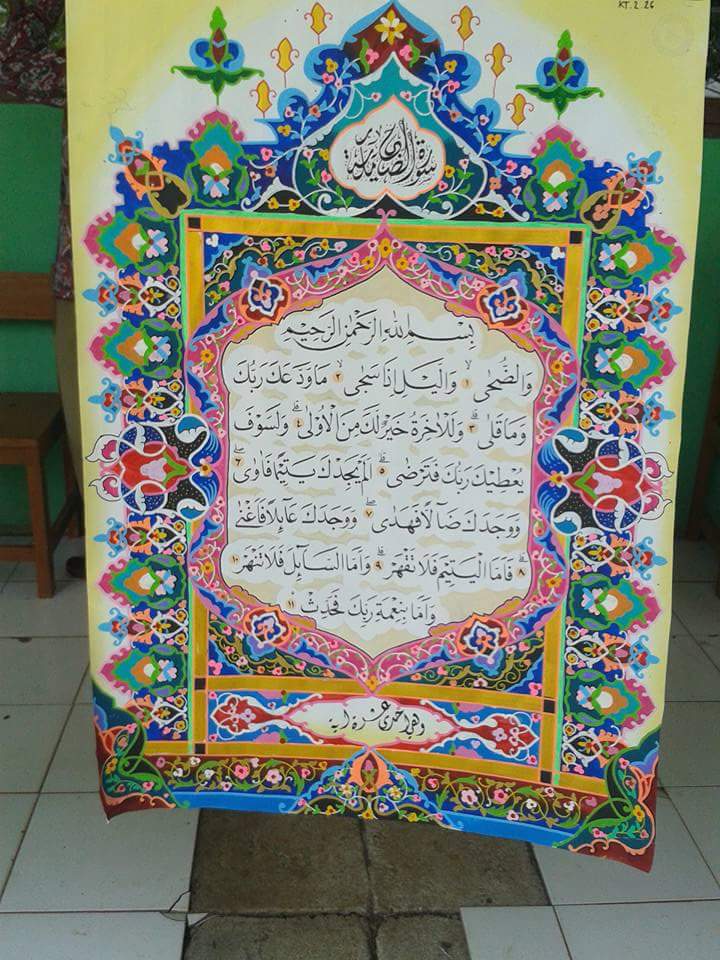 KT. 2. 26
سورة الضحى مكية
بِسْمِ اللهِ الرَّحْمٰنِ الرَّحِيْمِ
وَالضُّحٰى ١ وَالَّيْلِ اِذَا سَجٰى ٢ مَا وَدَّعَكَ رَبُّكَ
وَمَا قَلٰى ٣ وَلَلْاٰخِرَةُ خَيْرٌ لَّكَ مِنَ الْاُوْلٰى ٤ وَلَسَوْفَ
يُعْطِيْكَ رَبُّكَ فَتَرْضٰى ٥ اَلَمْ يَجِدْكَ يَتِيْمًا فَاٰوٰى ٦
وَوَجَدَكَ ضَاۤلًّا فَهَدٰى ٧ وَوَجَدَكَ عَاۤىِٕلًا فَاَغْنٰى
٨ فَاَمَّا الْيَتِيْمَ فَلَا تَقْهَرْ ٩ وَاَمَّا السَّاۤىِٕلَ فَلَا تَنْهَرْ ١٠
وَاَمَّا بِنِعْمَةِ رَبِّكَ فَحَدِّثْ ١١
وهي احدى عشرة اية